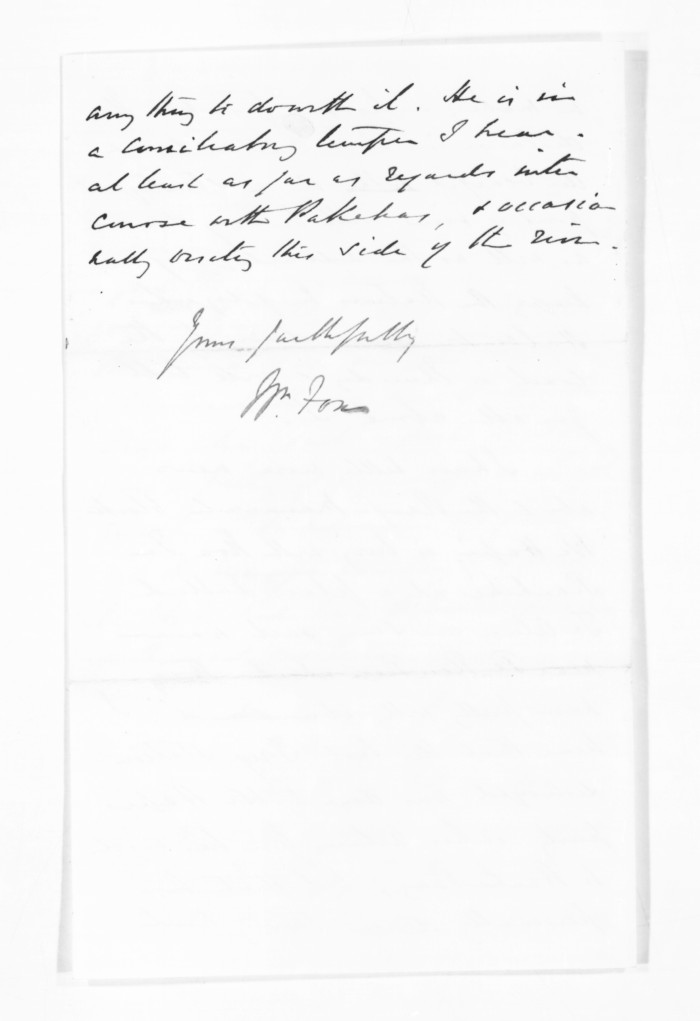 any thing to do with it. He is in
a conciliatory temper I hear -
at least as far as regards inter
course with Pakehas, & occasio
nally visiting this side of the river.
Yours faithfully
Wm. Fox